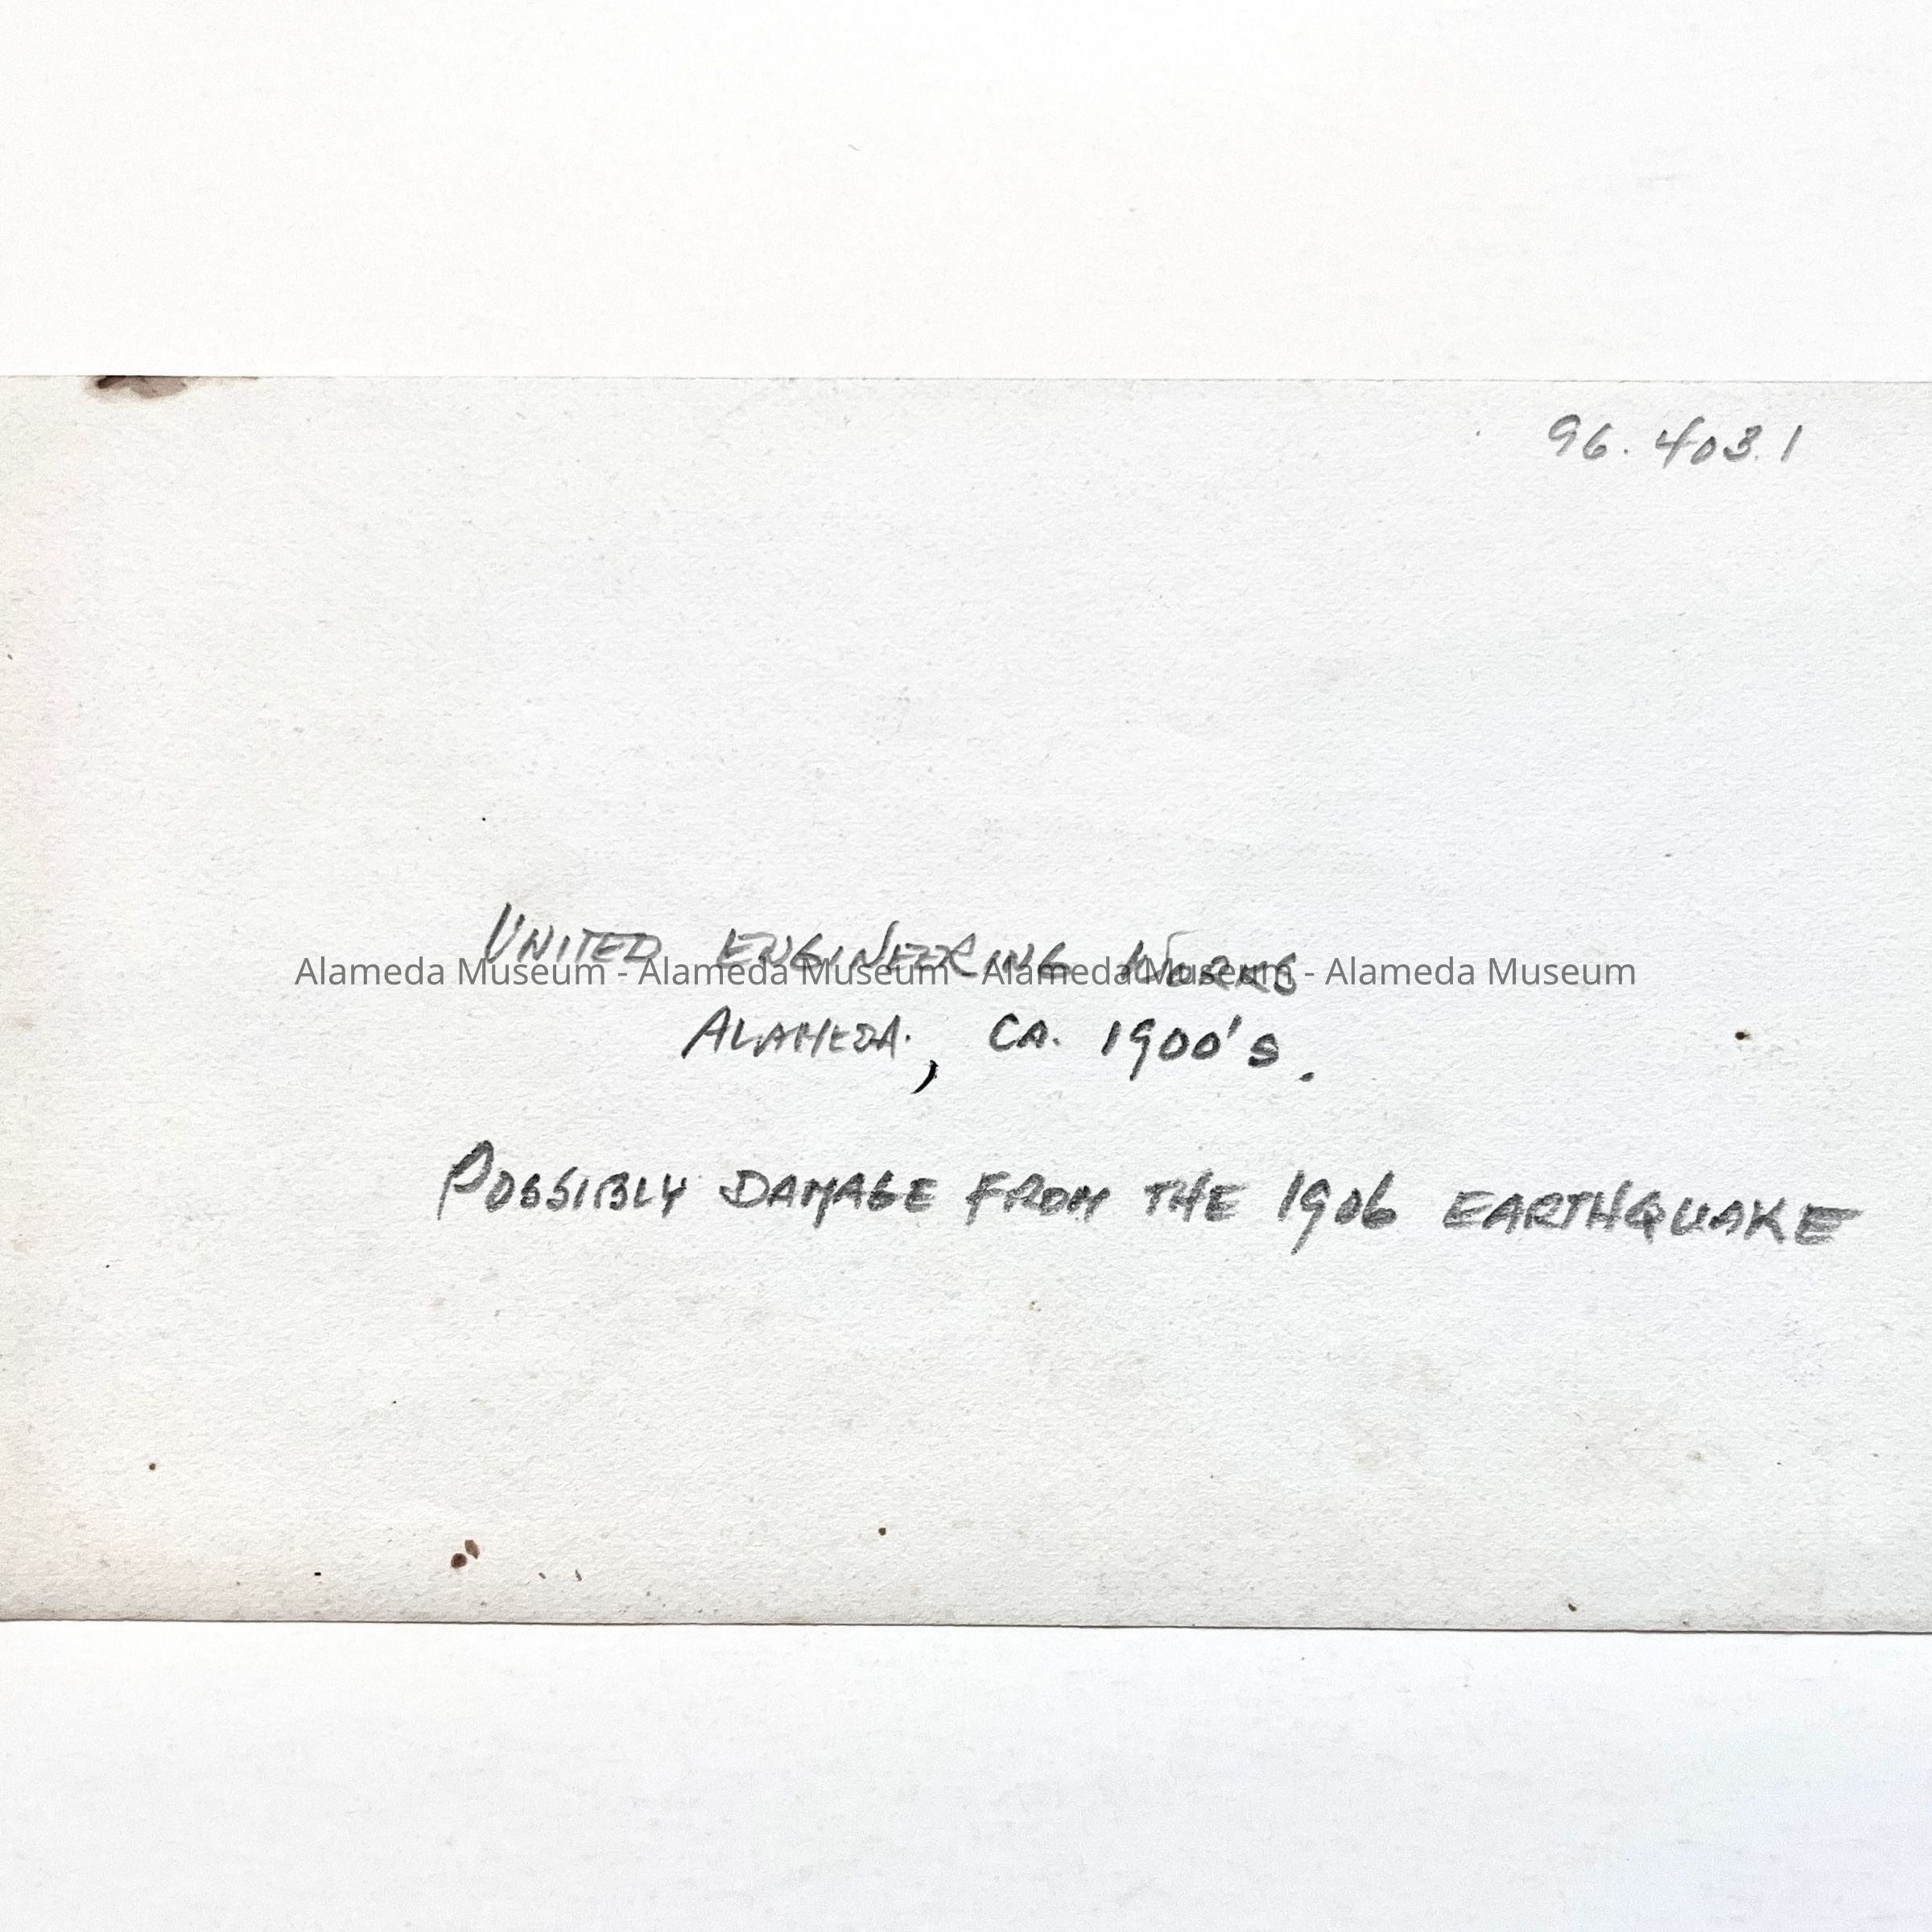 96.403.1
UNITED ENGINEERING WORKS
Alameda Museum - Alameda Museum - Alameda Museum - Alameda Museum
ALAMEDA, CA. 1900's.
POSSIBLY DAMAGE FROM THE 1906 EARTHQUAKE